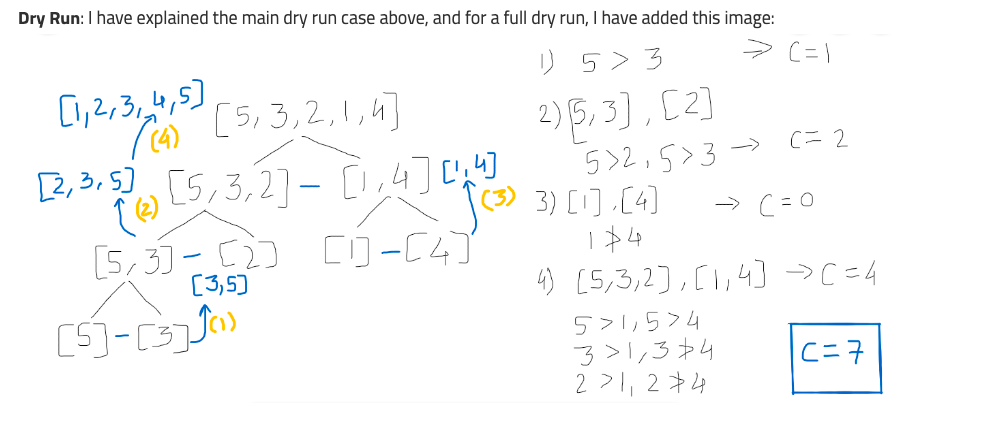 Dry Run: I have explained the main dry run case above, and for a full dry run, I have added this image:
[1,2,3,4,5]
(4)
[5,3,2,1,4]
[2,3,5]
(2)
[5,3,2] - [1,4]
[1,4]
(3)
[5,3] - [2]
[1] - [4]
[3,5]
[5] - [3]
(1)
1) 5 > 3 => C=1
2) [5,3], [2]
5>2, 5>3 → C=2
3) [1], [4] → C=0
1 ≯ 4
4) [5,3,2], [1,4] → C=4
5>1, 5>4
3>1, 3≯4
2>1, 2≯4
C=7